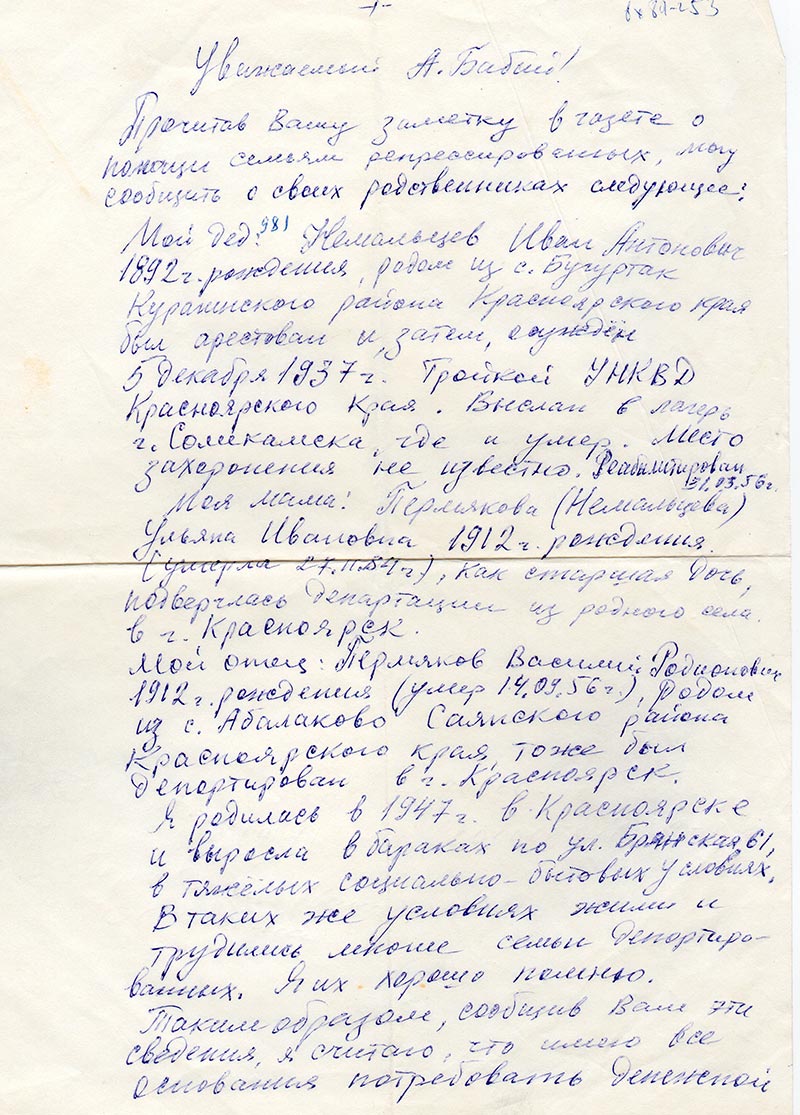 -1-
вх 84-253
Уважаемый А. Бабий!
Прочитав Вашу заметку в газете о
помощи семьям репрессированных, могу
сообщить о своих родственниках следующее:
981
Мой дед: Немальцев Иван Антонович
1892 г. рождения, родом из с. Бугуртак
Курагинского района Красноярского края
был арестован и, затем, осуждён
5 декабря 1937 г. Тройкой УНКВД
Красноярского Края. Выслан в лагерь
г. Соликамска, где и умер. Место
захоронения не известно. Реабилитирован
31.03.56 г.
Моя мама: Пермякова (Немальцева)
Ульяна Ивановна 1912 г. рождения.
(умерла г.), как старшая дочь,
подверглась департации из родного села
в г. Красноярск.
Мой отец: Пермяков Василий Родионович
1912 г. рождения (умер 14.09.56 г.), Родом
из с. Абалаково Саянского района
Красноярского края, тоже был
депортирован в г. Красноярск.
Я родилась в 1947 г. в Красноярске
и выросла в бараках по ул. Брянская 61,
в тяжёлых социально-бытовых условиях.
В таких же условиях жили и
трудились многие семьи депортиро-
ванных. Я их хорошо помню.
Таким образом, сообщив Вам эти
сведения, я считаю, что имею все
основания потребовать денежной